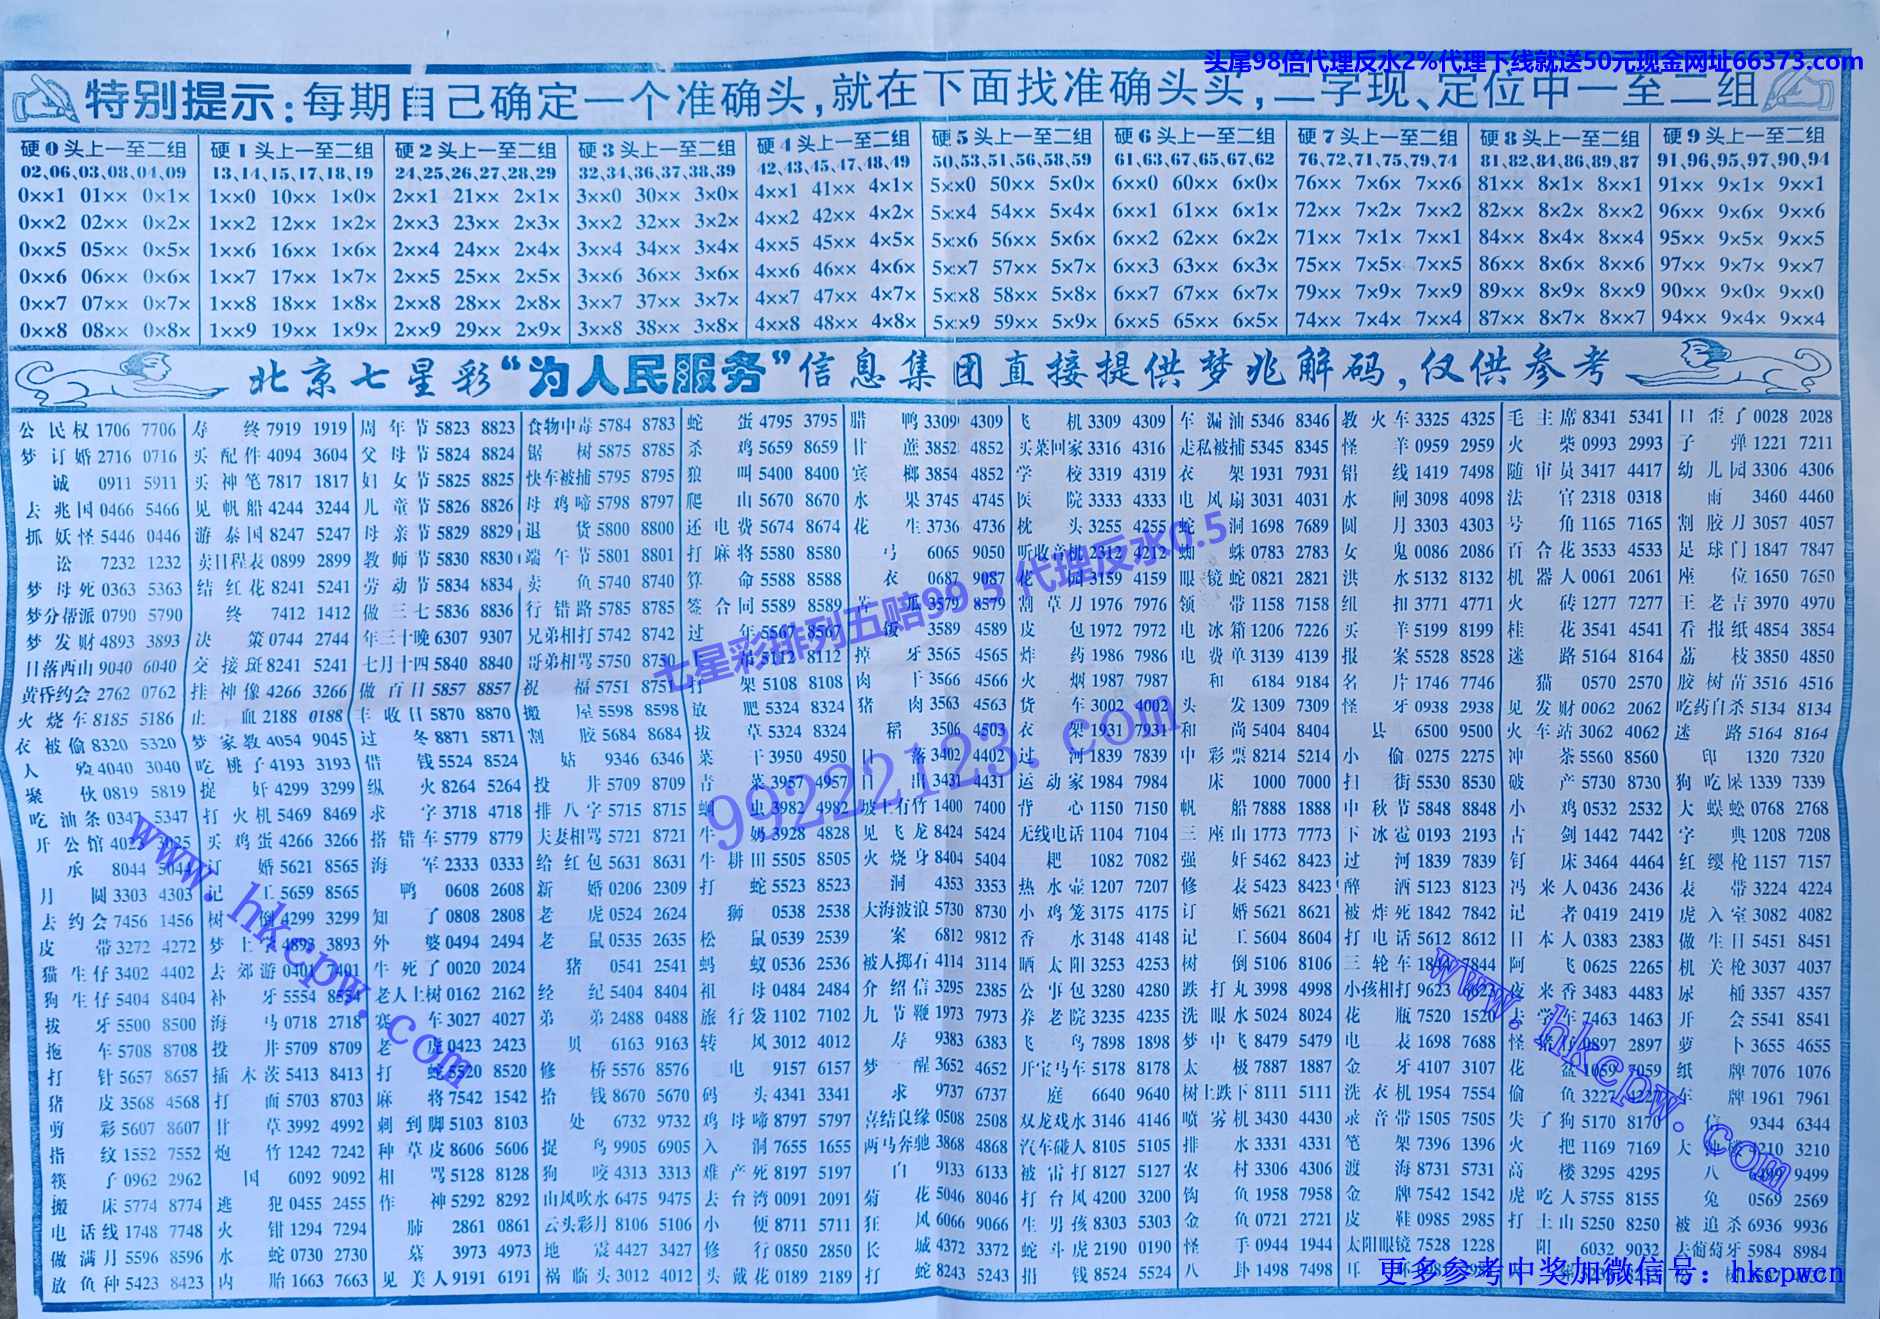 头尾98倍代理反水2%代理下线就送50元现金网址66373.com
特别提示：每期自己确定一个准确头，就在下面找准确头买，二字现、定位中一至二组
硬0头上一至二组 硬1头上一至二组 硬2头上一至二组 硬3头上一至二组 硬4头上一至二组 硬5头上一至二组 硬6头上一至二组 硬7头上一至二组 硬8头上一至二组 硬9头上一至二组
02,06,03,08,04,09 13,14,15,17,18,19 24,25,26,27,28,29 32,34,36,37,38,39 42,43,45,47,48,49 50,53,51,56,58,59 61,63,67,65,67,62 76,72,71,75,79,74 81,82,84,86,89,87 91,96,95,97,90,94
0××1 01×× 0×1× 1××0 10×× 1×0× 2××1 21×× 2×1× 3××0 30×× 3×0× 4××1 41×× 4×1× 5××0 50×× 5×0× 6××0 60×× 6×0× 76×× 7×6× 7××6 81×× 8×1× 8××1 91×× 9×1× 9××1
0××2 02×× 0×2× 1××2 12×× 1×2× 2××3 23×× 2×3× 3××2 32×× 3×2× 4××2 42×× 4×2× 5××4 54×× 5×4× 6××1 61×× 6×1× 72×× 7×2× 7××2 82×× 8×2× 8××2 96×× 9×6× 9××6
0××5 05×× 0×5× 1××6 16×× 1×6× 2××4 24×× 2×4× 3××4 34×× 3×4× 4××5 45×× 4×5× 5××6 56×× 5×6× 6××2 62×× 6×2× 71×× 7×1× 7××1 84×× 8×4× 8××4 95×× 9×5× 9××5
0××6 06×× 0×6× 1××7 17×× 1×7× 2××5 25×× 2×5× 3××6 36×× 3×6× 4××6 46×× 4×6× 5××7 57×× 5×7× 6××3 63×× 6×3× 75×× 7×5× 7××5 86×× 8×6× 8××6 97×× 9×7× 9××7
0××7 07×× 0×7× 1××8 18×× 1×8× 2××8 28×× 2×8× 3××7 37×× 3×7× 4××7 47×× 4×7× 5××8 58×× 5×8× 6××7 67×× 6×7× 79×× 7×9× 7××9 89×× 8×9× 8××9 90×× 9×0× 9××0
0××8 08×× 0×8× 1××9 19×× 1×9× 2××9 29×× 2×9× 3××8 38×× 3×8× 4××8 48×× 4×8× 5××9 59×× 5×9× 6××5 65×× 6×5× 74×× 7×4× 7××4 87×× 8×7× 8××7 94×× 9×4× 9××4
北京七星彩“为人民服务”信息集团直接提供梦兆解码，仅供参考
公民权 1706 7706 寿终 7919 1919 周年节 5823 8823 食物中毒 5784 8783 蛇蛋 4795 3795 腊鸭 3309 4309 飞机 3309 4309 车漏油 5346 8346 教火车 3325 4325 毛主席 8341 5341 口歪了 0028 2028
梦订婚 2716 0716 买配件 4094 3604 父母节 5824 8824 锯树 5875 8785 杀鸡 5659 8659 甘蔗 3852 4852 买菜回家 3316 4316 走私被捕 5345 8345 怪羊 0959 2959 火柴 0993 2993 子弹 1221 7211
诚 0911 5911 买神笔 7817 1817 妇女节 5825 8825 快车被捕 5795 8795 狼叫 5400 8400 宾榔 3854 4852 学校 3319 4319 衣架 1931 7931 铝线 1419 7498 随审员 3417 4417 幼儿园 3306 4306
去兆国 0466 5466 见帆船 4244 3244 儿童节 5826 8826 母鸡啼 5798 8797 爬山 5670 8670 水果 3745 4745 医院 3333 4333 电风扇 3031 4031 水闸 3098 4098 法官 2318 0318 雨 3460 4460
抓妖怪 5446 0446 游泰国 8247 5247 母亲节 5829 8829 退货 5800 8800 还电费 5674 8674 花生 3736 4736 枕头 3255 4255 蛇洞 1698 7689 圆月 3303 4303 号角 1165 7165 割胶刀 3057 4057
讼 7232 1232 卖日程表 0899 2899 教师节 5830 8830 端午节 5801 8801 打麻将 5580 8580 弓 6065 9050 听收音机 2312 4212 蜘蛛 0783 2783 女鬼 0086 2086 百合花 3533 4533 足球门 1847 7847
梦母死 0363 5363 结红花 8241 5241 劳动节 5834 8834 卖鱼 5740 8740 算命 5588 8588 衣 0687 9087 花园 3159 4159 眼镜蛇 0821 2821 洪水 5132 8132 机器人 0061 2061 座位 1650 7650
梦分帮派 0790 5790 终 7412 1412 做三七 5836 8836 行错路 5785 8785 签合同 5589 8589 苦瓜 3579 8579 割草刀 1976 7976 领带 1158 7158 纽扣 3771 4771 火砖 1277 7277 王老吉 3970 4970
梦发财 4893 3893 决策 0744 2744 年三十晚 6307 9307 兄弟相打 5742 8742 过年 5567 8567 3589 4589 皮包 1972 7972 电冰箱 1206 7226 买羊 5199 8199 桂花 3541 4541 看报纸 4854 3854
日落西山 9040 6040 交接班 8241 5241 七月十四 5840 8840 哥弟相骂 5750 8750 5112 8112 掉牙 3565 4565 炸药 1986 7986 电费单 3139 4139 报案 5528 8528 迷路 5164 8164 荔枝 3850 4850
黄昏约会 2762 0762 挂神像 4266 3266 做百日 5857 8857 祝福 5751 8751 打架 5108 8108 肉干 3566 4566 火烟 1987 7987 和 6184 9184 名片 1746 7746 猫 0570 2570 胶树苗 3516 4516
火烧车 8185 5186 止血 2188 0188 丰收日 5870 8870 搬屋 5598 8598 放肥 5324 8324 猪肉 3563 4563 货车 3002 4002 头发 1309 7309 怪牙 0938 2938 见发财 0062 2062 吃药自杀 5134 8134
衣被偷 8320 5320 梦家教 4054 9045 过冬 8871 5871 割胶 5684 8684 拔草 5324 8324 稻 3506 4503 衣架 1931 7931 和尚 5404 8404 县 6500 9500 火车站 3062 4062 迷路 5164 8164
人 4040 3040 吃桃子 4193 3193 借钱 5524 8524 姑 9346 6346 菜干 3950 4950 日落 3402 4402 过河 1839 7839 中彩票 8214 5214 小偷 0275 2275 冲茶 5560 8560 印 1320 7320
聚伙 0819 5819 捉奸 4299 3299 纵火 8264 5264 投井 5709 8709 青菜 3957 4957 日出 3431 4431 运动家 1984 7984 床 1000 7000 扫街 5530 8530 破产 5730 8730 狗吃屎 1339 7339
吃油条 0347 5347 打火机 5469 8469 求字 3718 4718 排八字 5715 8715 虫 3982 4982 1400 7400 背心 1150 7150 帆船 7888 1888 中秋节 5848 8848 小鸡 0532 2532 大蜈蚣 0768 2768
开公馆 买鸡蛋 4266 3266 搭错车 5779 8779 夫妻相骂 5721 8721 牛奶 3928 4828 见飞龙 8424 5424 无线电话 1104 7104 三座山 1773 7773 下冰雹 0193 2193 古剑 1442 7442 字典 1208 7208
承 8044 订婚 5621 8565 海军 2333 0333 给红包 5631 8631 牛耕田 5505 8505 火烧身 8404 5404 耙 1082 7082 强奸 5462 8423 过河 1839 7839 钉床 3464 4464 红缨枪 1157 7157
月圆 3303 4303 记工 5659 8565 鸭 0608 2608 新婚 0206 2309 打蛇 5523 8523 洞 4353 3353 热水壶 1207 7207 修表 5423 8423 醉酒 5123 8123 冯来人 0436 2436 表带 3224 4224
去约会 7456 1456 树倒 4299 3299 知了 0808 2808 老虎 0524 2624 狮 0538 2538 大海波浪 5730 8730 小鸡笼 3175 4175 订婚 5621 8621 被炸死 1842 7842 记者 0419 2419 虎入室 3082 4082
皮带 3272 4272 梦上学 4893 3893 外婆 0494 2494 老鼠 0535 2635 松鼠 0539 2539 案 6812 9812 香水 3148 4148 记工 5604 8604 打电话 5612 8612 日本人 0383 2383 做生日 5451 8451
猫生仔 3402 4402 去郊游 0401 7401 牛死了 0020 2024 猪 0541 2541 蚂蚁 0536 2536 被人掷石 4114 3114 晒太阳 3253 4253 树倒 5106 8106 三轮车 1844 7844 阿飞 0625 2265 机关枪 3037 4037
狗生仔 5404 8404 补牙 5554 8554 老人上树 0162 2162 经纪 5404 8404 祖母 0484 2484 介绍信 3295 2385 公事包 3280 4280 跌打丸 3998 4998 小孩相打 9623 夜来香 3483 4483 尿桶 3357 4357
拔牙 5500 8500 海马 0718 2718 赛车 3027 4027 弟弟 2488 0488 旅行袋 1102 7102 九节鞭 1973 7973 养老院 3235 4235 洗眼水 5024 8024 花瓶 7520 1520 去学车 7463 1463 开会 5541 8541
拖车 5708 8708 投井 5709 8709 老虎 0423 2423 贝 6163 9163 转风 3012 4012 寿 9383 6383 飞鸟 7898 1898 梦中飞 8479 5479 电表 1698 7688 怪 0897 2897 萝卜 3655 4655
打针 5657 8657 插木茨 5413 8413 打蛇 5520 8520 修桥 5576 8576 电 9157 6157 梦醒 3652 4652 开宝马车 5178 8178 太极 7887 1887 金牙 4107 3107 花盆 1059 7059 纸牌 7076 1076
猪皮 3568 4568 打面 5703 8703 麻将 7542 1542 拾钱 8670 5670 码头 4341 3341 求 9737 6737 庭 6640 9640 树上跌下 8111 5111 洗衣机 1954 7554 偷鱼 3227 4227 车牌 1961 7961
剪彩 5607 8607 甘草 3992 4992 刺到脚 5103 8103 处 6732 9732 鸡母啼 8797 5797 喜结良缘 0508 2508 双龙戏水 3146 4146 喷雾机 3430 4430 录音带 1505 7505 失了狗 5170 8170 信 9344 6344
指纹 1552 7552 炮竹 1242 7242 种草皮 8606 5606 捉鸟 9905 6905 入洞 7655 1655 两马奔驰 3868 4868 汽车碰人 8105 5105 排水 3331 4331 笔架 7396 1396 火把 1169 7169 大 3210
筷子 0962 2962 国 6092 9092 相骂 5128 8128 狗咬 4313 3313 难产死 8197 5197 门 9133 6133 被雷打 8127 5127 农村 3306 4306 渡海 8731 5731 高楼 3295 4295 八 9499
搬床 5774 8774 逃犯 0455 2455 作神 5292 8292 山风吹水 6475 9475 去台湾 0091 2091 菊花 5046 8046 打台风 4200 3200 钩鱼 1958 7958 金牌 7542 1542 虎吃人 5755 8155 兔 0569 2569
电话线 1748 7748 火钳 1294 7294 肺 2861 0861 云头彩月 8106 5106 小便 8711 5711 狂风 6066 9066 生男孩 8303 5303 金鱼 0721 2721 皮鞋 0985 2985 打土山 5250 8250 被追杀 6936 9936
做满月 5596 8596 水蛇 0730 2730 墓 3973 4973 地震 4427 3427 修行 0850 2850 长城 4372 3372 蛇斗虎 2190 0190 怪手 0944 1944 太阳眼镜 7528 1228 阳 6032 9032 去葡萄牙 5984 8984
放鱼种 5423 8423 内胎 1663 7663 见美人 9191 6191 祸临头 3012 4012 头戴花 0189 2189 打蛇 8243 5243 捐钱 8524 5524 八卦 1498 7498
七星彩排列五赔99.5 代理反水0.5
99222123.com
www.hkcpw.com
www.hkcpw.com
更多参考中奖加微信号：hkcpwcn